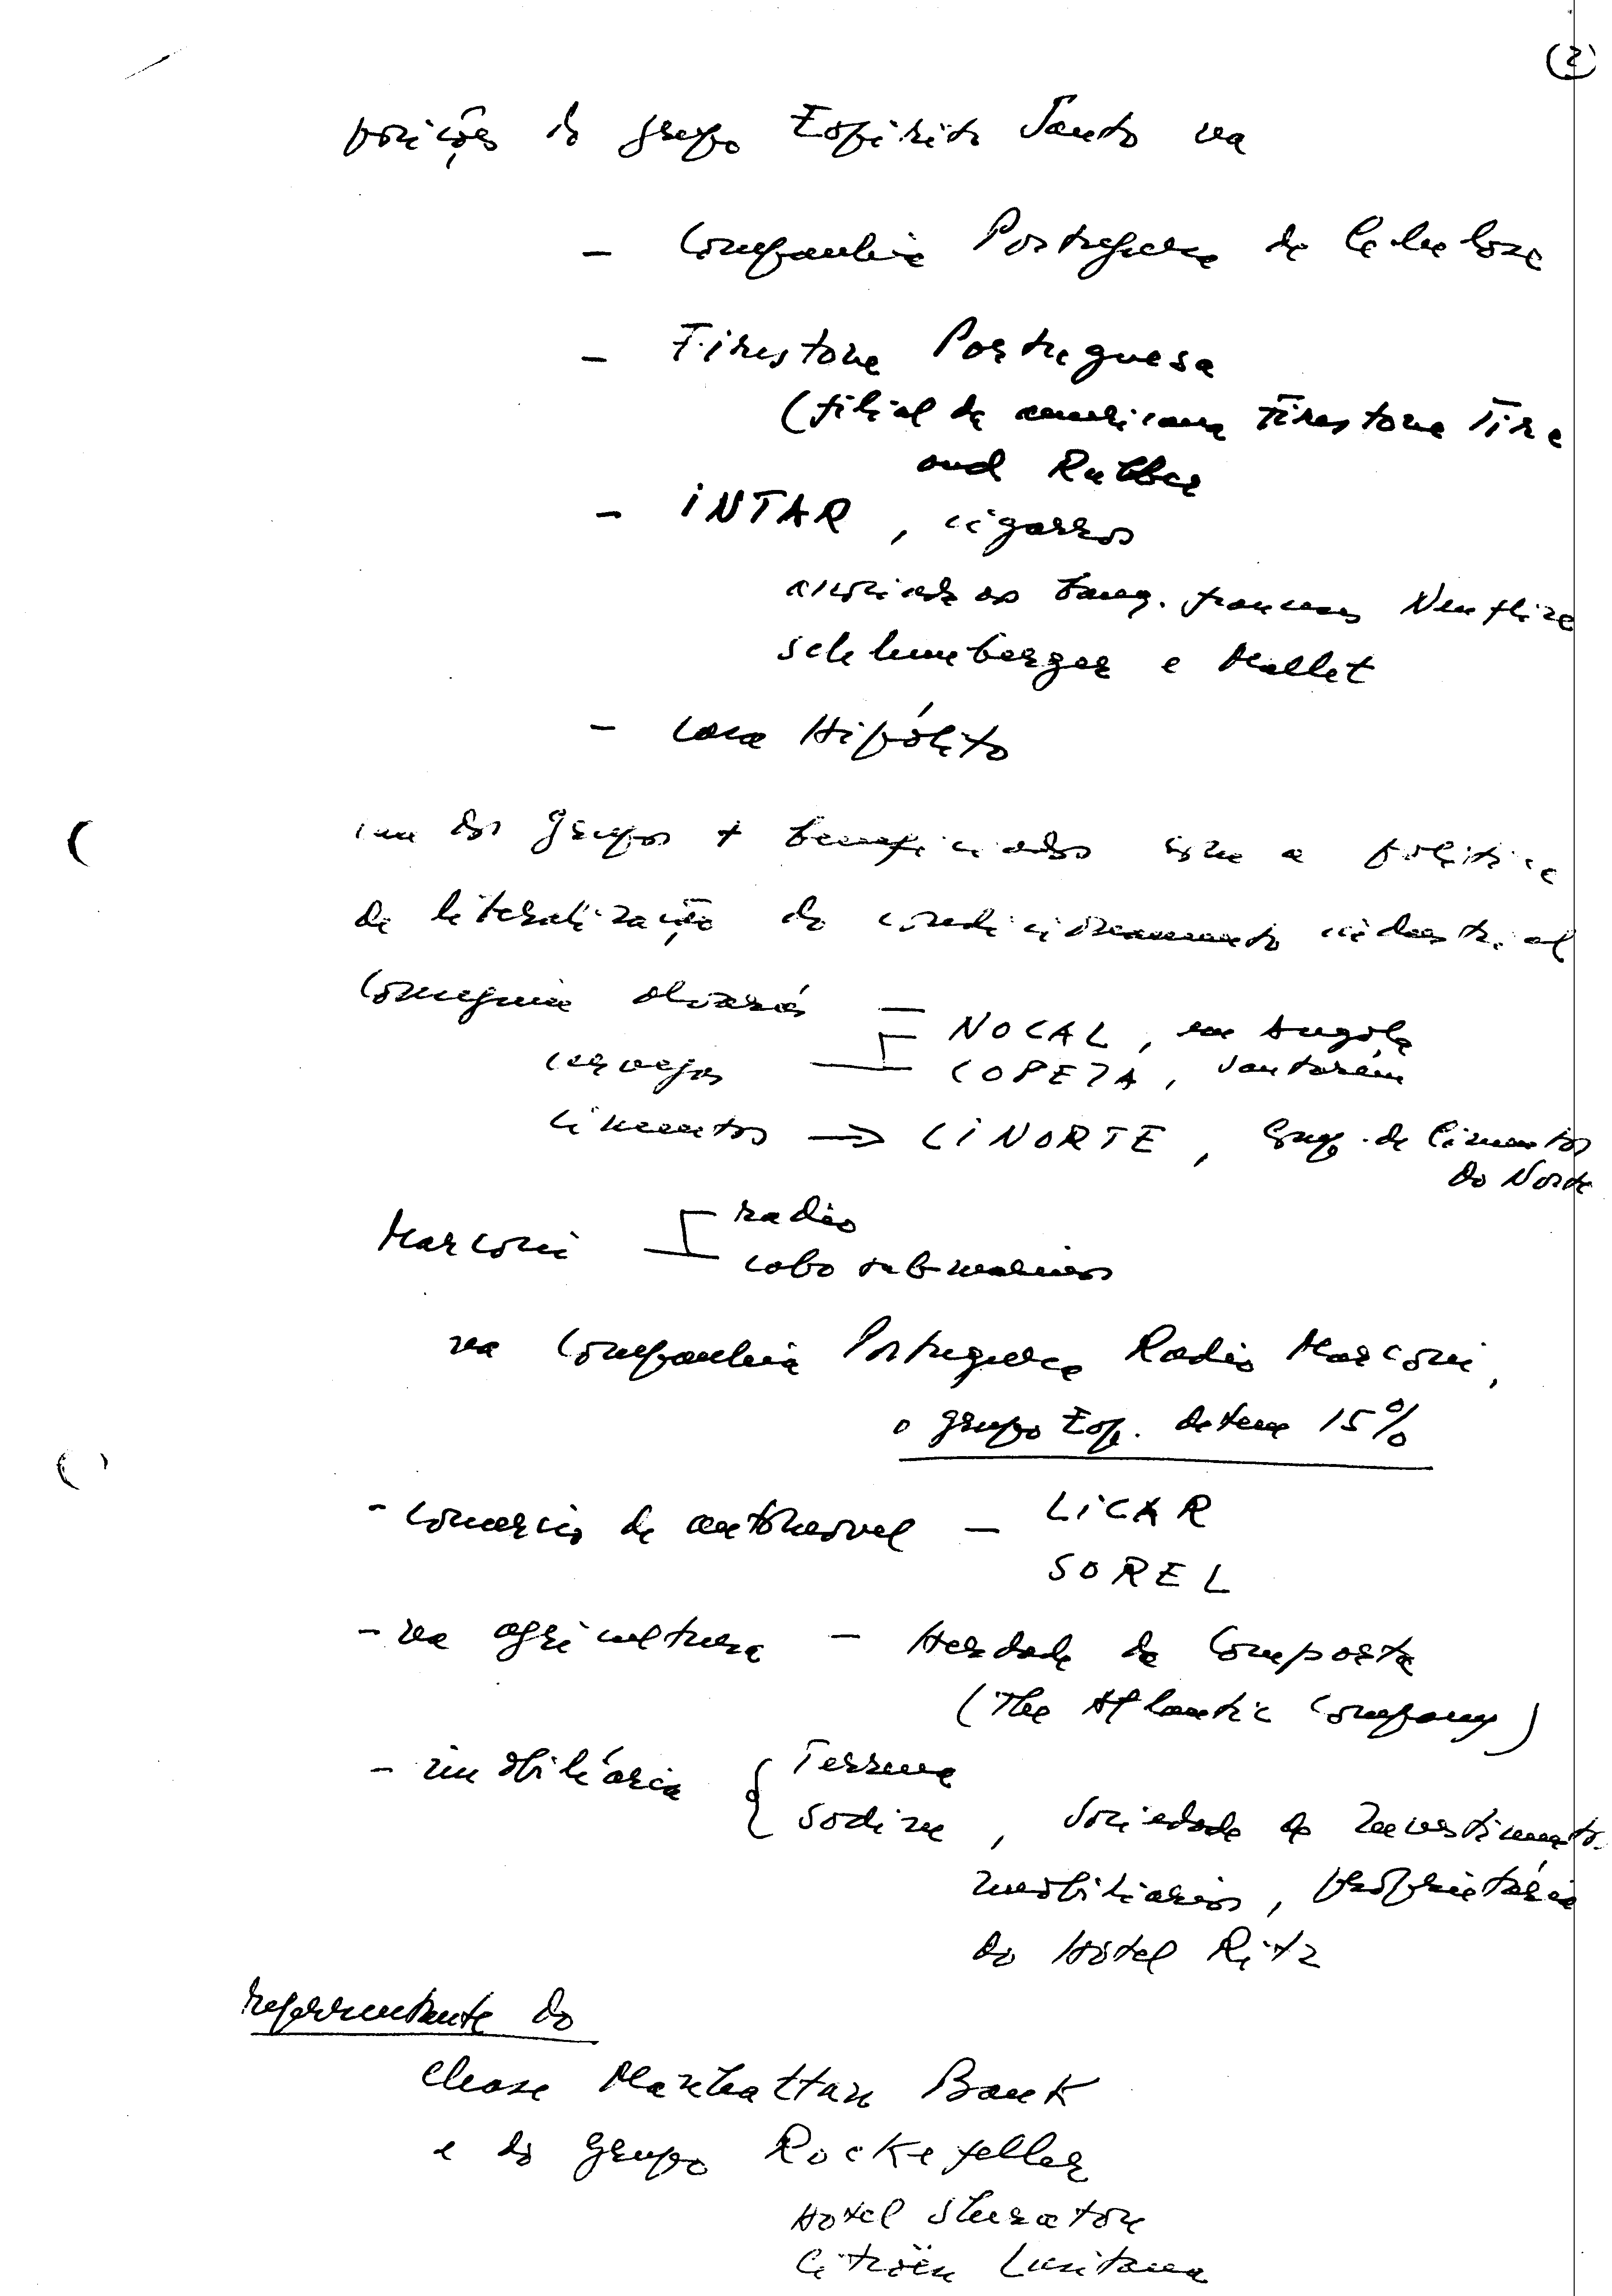 (2)
posições do grupo Espirito Santo na
- Companhia Portuguesa de Celulose
- Firestone Portuguesa
(filial da americana Firestone Tire
and Rubber
- INTAR, cigarros
associado ao banq. franceses Neuflize
Schlumberger e Mallet
- Casa Hipólito
um dos grupos + beneficiados com a politica
de liberalização do condicionamento industrial
Conseguiu alvarás
cervejas
- NOCAL, em Angola
COPEJA, Santarém
Cimentos → CINORTE, Emp. de Cimentos
do Norte
Marconi
radio
cabo submarinos
na Companhia Portuguesa Radio Marconi,
o grupo Esp. detem 15%
- comercio de automovel - LICAR
SOREL
- na agricultura - Herdade da Comporta
(The Atlantic Company)
- imobiliária { Terrene
Sodim, Sociedade de Investimentos
imobiliarios, proprietária
do Hotel Ritz
representante do
Chase Manhattan Bank
e do grupo Rockefeller
Hotel Sheraton
Citroën Lusitana